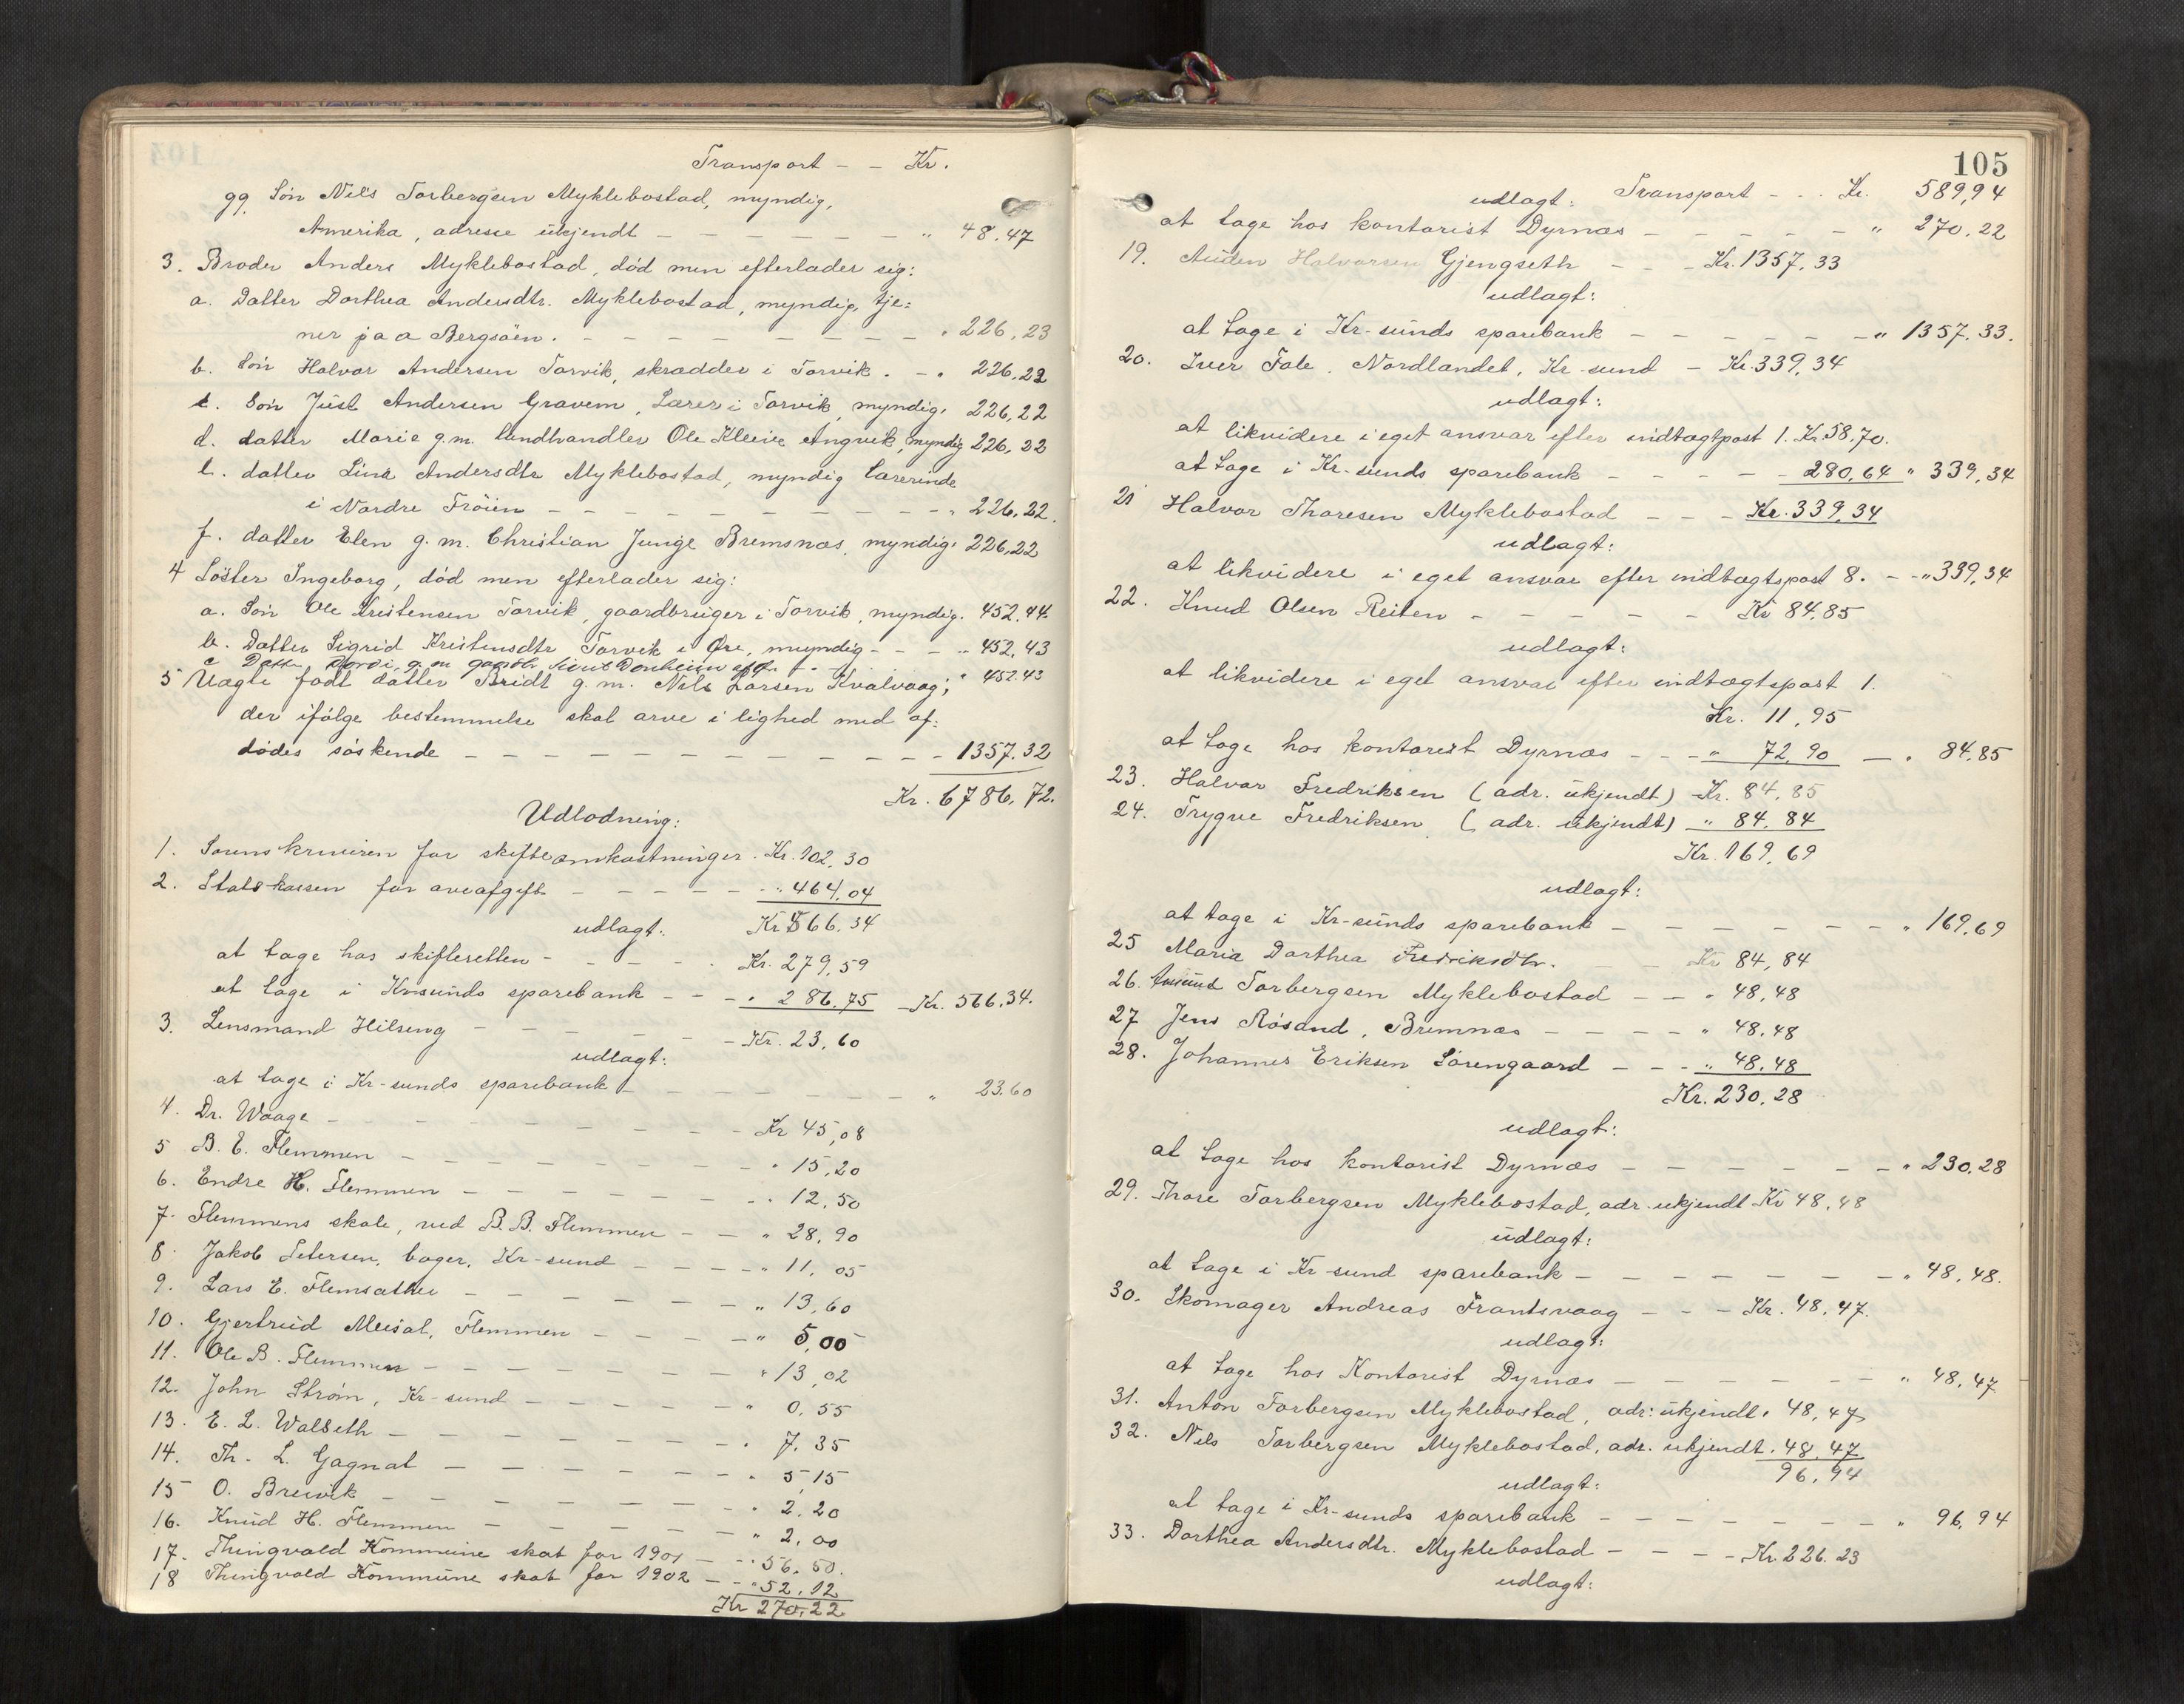 Transport - - Kr.
gg. Søn Nils Torbergsen Myklebostad, myndig,
Amerika, adresse ukjendt - - - - - - " 48,47
3. Broder Anders Myklebostad, død men efterlader sig:
a. Datter Dorthea Andersdtr. Myklebostad, myndig, tje=
ner paa Bergsøen. - - - - - - - - - " 226,23
b. Søn Halvor Andersen Torvik, skrædder i Torvik. - " 226,22
c. Søn Just Andersen Gravem, Lærer i Torvik, myndig, 226,22
d. datter Marie g.m. landhandler Ole Kleive Angvik, myndig 226,22
e. datter Lina Andersdtr Myklebostad, myndig Lærerinde
i Nordre Frøien - - - - - - - - - - " 226,22.
f. datter Elen g.m. Christian Junge Bremsnæs, myndig, 226,22
4 Søster Ingeborg, død men efterlader sig:
a. Søn Ole Kristensen Torvik, gaardbruger i Torvik, myndig. 452,44
b. Datter Sigrid Kristensdtr Torvik i Øre, myndig - - - " 452,43
c Datter g.m. " 452.43
5 Uægte født datter Bridt g.m. Nils Larsen Kvalvaag;
der ifølge bestemmelse skal arve i lighed med af=
dødes søskende - - - - - - - - - - - - 1357,32
Kr. 6786,72.
Udlodning:
1. Sorenskriveren for skifteomkostninger. Kr. 102,30
2. Statskassen for arveafgift - - - - - " 464,04
Kr 566,34
udlagt:
at tage hos skifteretten - - - - - Kr. 279,59
at tage i Krsunds sparebank - - - " 286,75 - Kr. 566,34.
3. Lensmand Hilseng - - - - - - - Kr. 23,60
udlagt:
at tage i Kr-sunds sparebank - - - - - - - " 23.60
4. Dr. Waage - - - - - - - - Kr 45,08
5 B. E. Flemmen - - - - - - - - " 15,20
6. Endre H. Flemmen - - - - - - - " 12,50
7. Flemmens skole, ved B. B. Flemmen - - " 28,90
8. Jakob Petersen, bager, Kr-sund - - - - " 11,05
9. Lars E. Flemsæther - - - - - - - " 13,60
10. Gjertrud Meisal, Flemmen - - - - " 5,00
11. Ole B. Flemmen - - - - - - - " 13,02
12. John Strøm, Kr-sund - - - - - " 0,55
13. E. L. Walseth - - - - - - - - " 7,35
14. Th. L. Gagnat - - - - - - - " 5,15
15 O. Breivik - - - - - - - - " 2,20
16. Knud H. Flemmen - - - - - - " 2,00
17. Thingvold Kommune skat for 1901 - - " 56,50.
18 Thingvold Kommune skat for 1902 - - " 52,12
Kr 270,22
105
Transport - - - Kr. 589,94
udlagt:
at tage hos kontorist Dyrnæs - - - - - " 270,22
19. Auden Halvorsen Gjengseth - - - Kr. 1357,33
udlagt:
at tage i Kr-sunds sparebank - - - - - - " 1357,33.
20. Iver Fale, Nordlandet, Kr-sund - Kr. 339,34
udlagt:
at likvidere i eget ansvar efter indtægtpost 1. Kr. 58,70.
at tage i Kr-sunds sparebank - - - - 280,64 " 339,34
21 Halvor Thoresen Myklebostad - - - Kr. 339,34
udlagt:
at likvidere i eget ansvar efter indtægtspost 8. - - " 339,34
22. Knud Olsen Reiten - - - - - - Kr 84,85
udlagt:
at likvidere i eget ansvar efter indtægtspost 1.
Kr. 11,95
at tage hos kontorist Dyrnæs - - - " 72,90 - " 84,85
23. Halvor Fredriksen (adr. ukjendt) - Kr. 84,85
24. Trygve Fredriksen (adr. ukjendt) " 84,84
Kr. 169,69
udlagt:
at tage i Kr-sunds sparebank - - - - - - - " 169,69
25 Maria Dorthea Fredriksdtr. - - Kr 84,84
26. Amund Torbergsen Myklebostad - - " 48,48
27 Jens Røsand, Bremnæs - - - - - " 48,48
28. Johannes Eriksen Sørengaard - - - " 48,48
Kr. 230,28
udlagt:
at tage hos kontorist Dyrnæs - - - - - - - " 230,28
29. Thore Torbergsen Myklebostad, adr. ukjendt Kr 48,48
udlagt:
at tage i Kr-sund sparebank - - - - - - - " 48,48.
30. Skomager Andreas Frantsvaag - - - Kr. 48,47.
udlagt:
at tage hos Kontorist Dyrnæs - - - - - - " 48,47
31. Anton Torbergsen Myklebostad, adr: ukjendt " 48,47
32. Nels Torbergsen Myklebostad, adr. ukjendt. 48,47
96,94
udlagt:
at tage i Kr-sunds sparebank - - - - - - - " 96,94
33. Dorthea Andersdtr. Myklebostad - - - - Kr. 226.23
udlagt: